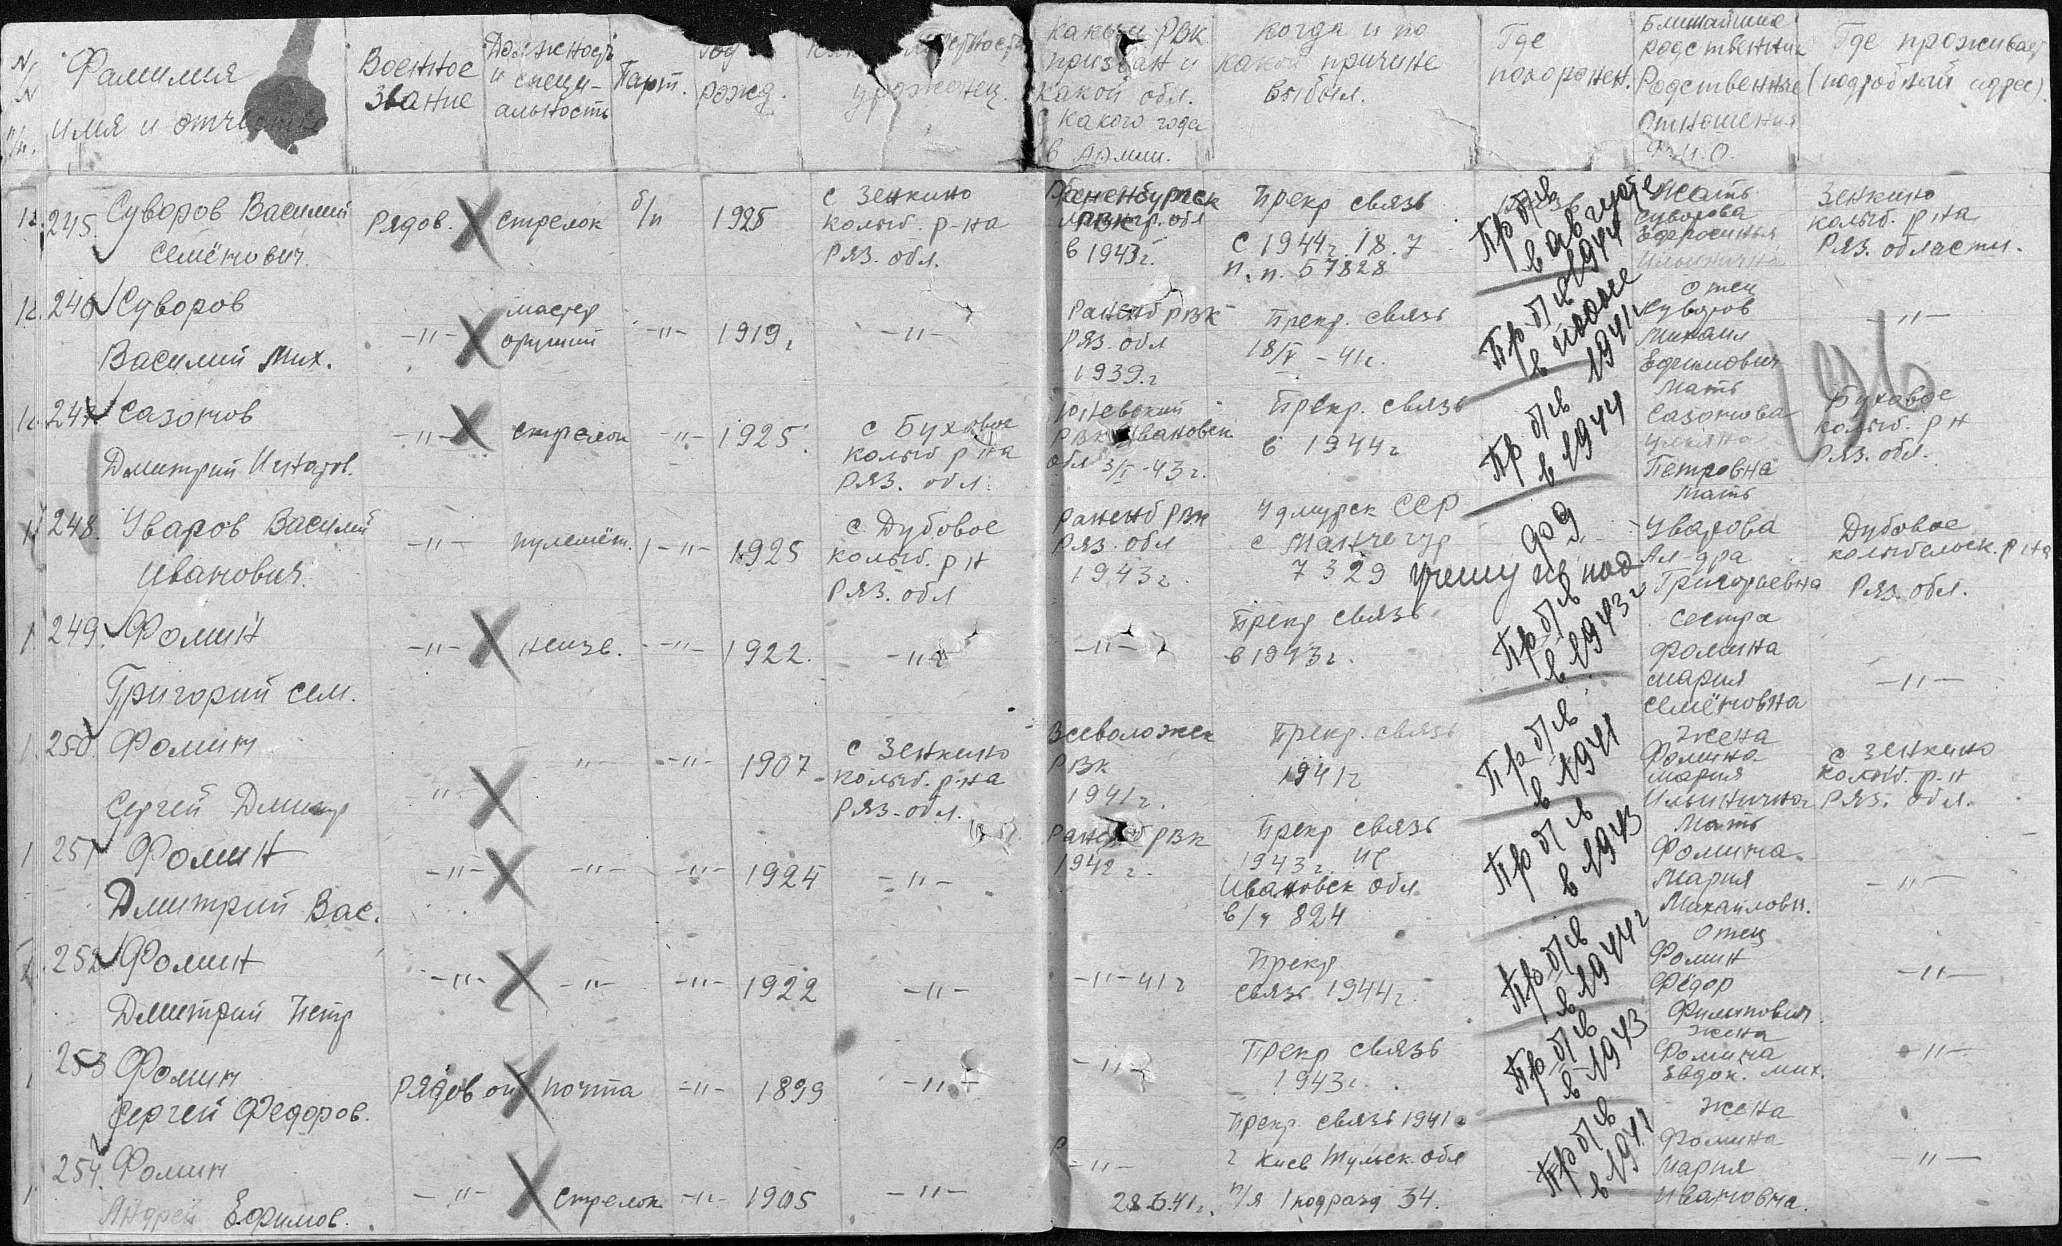 Фамилия
имя и отчество
Военное
звание
Должность
и специ-
альность
Парт.
рожд.
уроженец.
Каким РВК
призван и
какой обл.
с какого года
в Армии.
Когда и по
какой причине
выбыл.
Где
похоронен.
Ближайшие
родственник
Родственные
отношения
Ф.И.О.
Где проживает
(подробный адрес).
245. Суворов Василий
Семёнович
Рядов.
стрелок
б/п
1925
с Зенкино
колыб. р-на
Ряз. обл.
Раненбургск
РВК
в 1943г.
Прекр связь
с 1944г. 18.7
п.п. 57828
Пр б/в
в августе
1944
Мать
Суворова
Ефросинья
Ильинична
Зенкино
колыб. р-на
Ряз. области.
246 Суворов
Василий Мих.
-"-
мастер
оружий
-"-
1919г
-"-
Раненб РВК
Ряз. обл
1939.г
Прекр. связь
18/V -41г.
Пр б/в
в июне
1941г
отец
Суворов
Михаил
Ефимович
-"-
247 Сазонов
Дмитрий Игнатов.
-"-
стрелок
-"-
1925.
с Буховое
колыб р на
Ряз. обл.
РВК Ивановск
обл 3/I -43г.
Прекр. связь
в 1944г
Пр б/в
в 1944
мать
Сазонова
Ульяна
Петровна
Буховое
колыб. р н
Ряз. обл.
196
248. Уваров Василий
Иванович.
-"-
пулемёт.
-"-
1925
с Дубовое
колыб. р н
Ряз. обл
Раненб РВК
Ряз. обл
1943г.
Удмурск ССР
7329
мать
Уварова
Ал-дра
Григорьевна
Дубовое
колыбельск. р на
Ряз. обл.
249. Фомин
Григорий Сем.
-"-
неизв.
-"-
1922.
-"-
-"-
Прекр связь
в 1943г.
Пр б/в
в 1943г
сестра
Фомина
Мария
Семёновна
-"-
250 Фомин
Сергей Дмитр
-"-
-"-
-"-
1907
с Зенкино
колыб. р-на
Ряз. обл.
Всеволожск
РВК
1941г.
Прекр. связь
1941г
Пр б/в
в 1941
Жена
Фомина
Мария
Ильинична
с Зенкино
колыб. р-н
Ряз. обл.
251 Фомин
Дмитрий Вас.
-"-
-"-
-"-
1924
-"-
Раненб РВК
1942г.
Прекр связь
1943г. из
Ивановск обл.
в/ч 824
Пр б/в
в 1943
Мать
Фомина
Мария
Михайловн.
-"-
252 Фомин
Дмитрий Петр
-"-
-"-
-"-
1922
-"-
-"- 41г
Прекр
связь 1944г.
Пр б/в
в 1944г
отец
Фомин
Фёдор
Филипович
-"-
253 Фомин
Сергей Федоров.
Рядовой
почта
-"-
1899
-"-
-"-
Прекр связь
1943г.
Пр б/в
в 1943
жена
Фомина
Евдок. Мих.
-"-
254. Фомин
Андрей Ефимов.
-"-
стрелок
-"-
1905
-"-
-"-
28.6.41г.
Прекр. связь 1941г
г Киев Тульск. обл
п/я 1 подразд 34.
Пр б/в
в 1941
жена
Фомина
Мария
Ивановна.
-"-